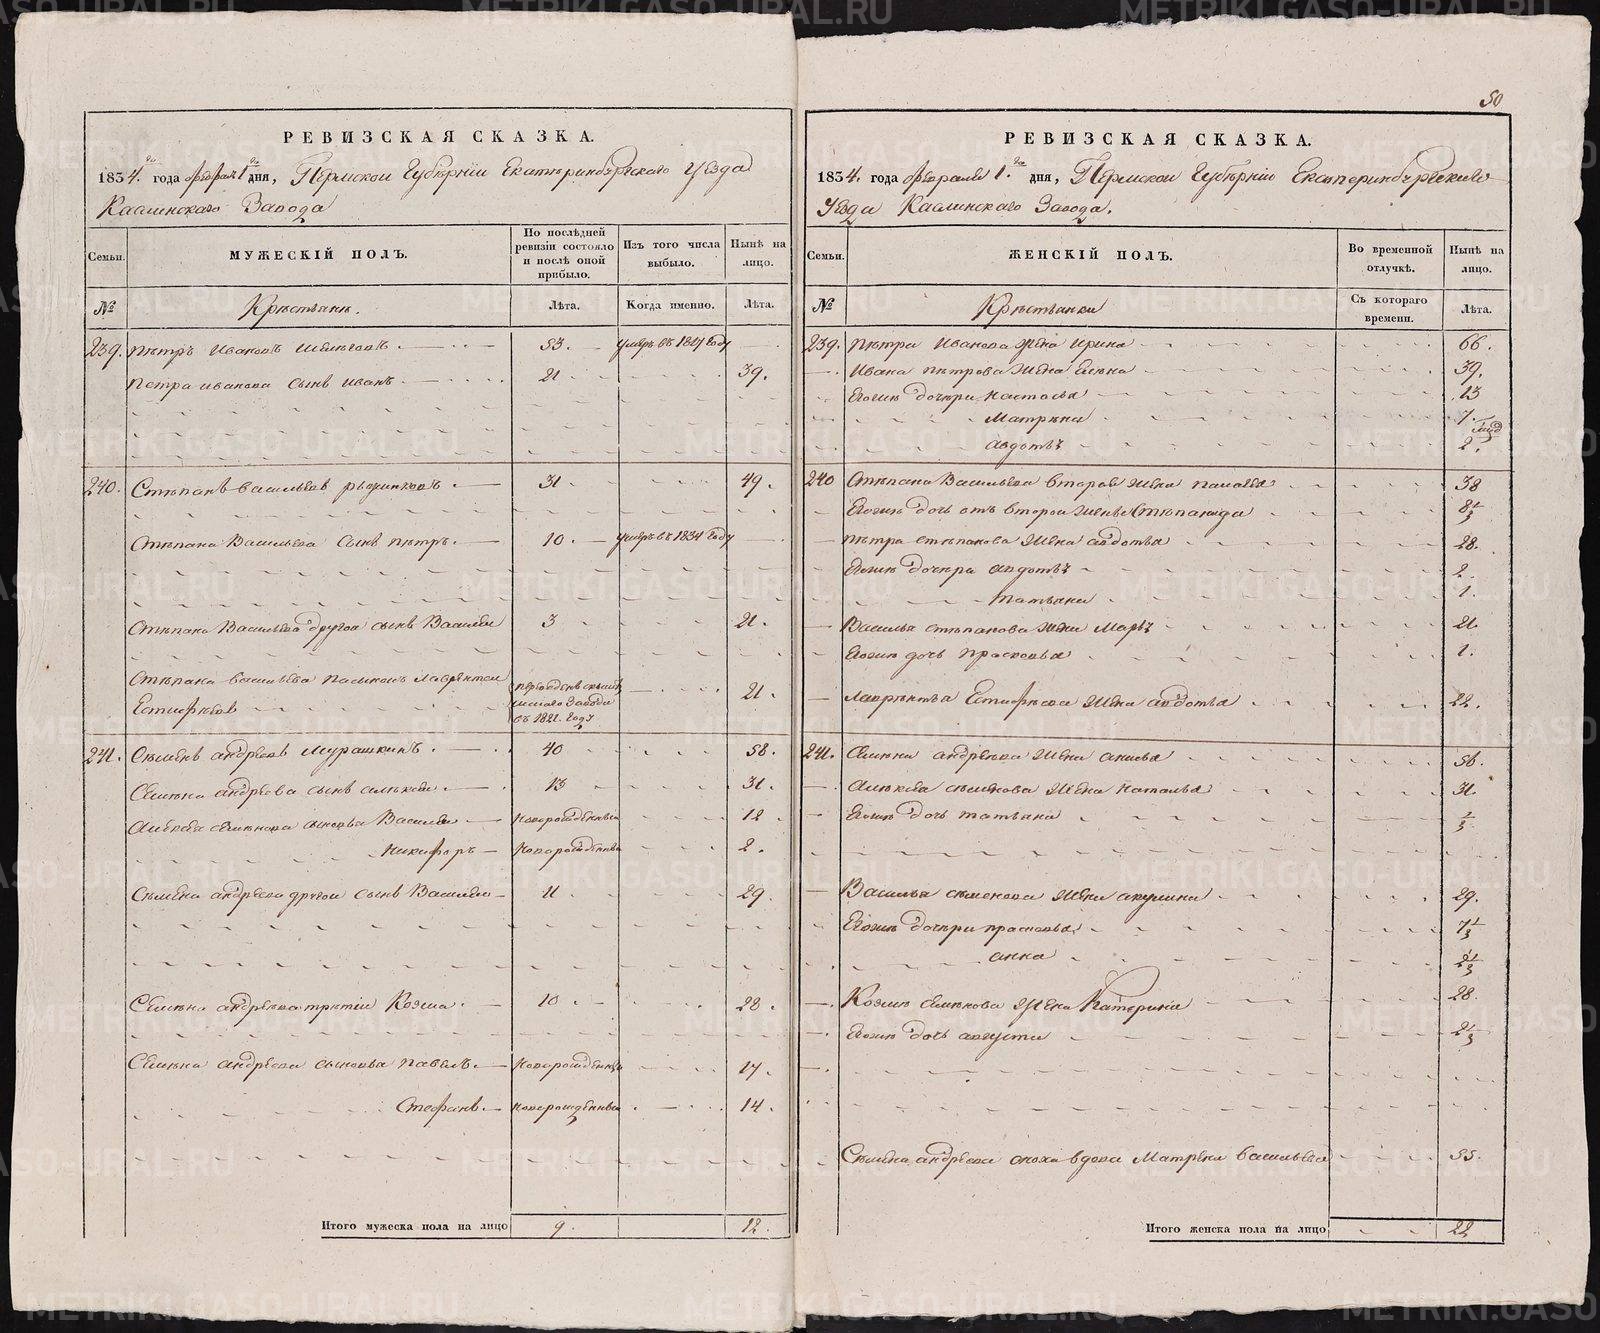 50
РЕВИЗСКАЯ СКАЗКА.
1834 года февраля 1 дня, Пермской Губерніи Екатеринбургскаго Уезда
Каслинскаго Завода
Семьи.
МУЖЕСКІЙ ПОЛЪ.
По послѣдней ревизіи состояло и послѣ оной прибыло.
Изъ того числа выбыло.
Нынѣ на лицо.
№
Крестьяне.
Лѣта.
Когда именно.
Лѣта.
239. Петръ Ивановъ 53. умеръ въ 1827 году
Петра иванова сынъ иванъ 21 39.
240. Степанъ васильевъ 31 49.
Степана Васильева сынъ петръ. 10. умеръ въ 1831 году
Степана Васильева другой сынъ Василей 3 21.
Степана васильева Лаврентей
Естифеевъ 21.
въ 1821. году
241. Семенъ андреевъ Мурашкинъ 40 58.
Семена андреева сынъ алексей 13 31.
Алексея семенова сыновья Василей новорожденный 12
Никифоръ новорожденный 2.
Семена андреева другой сынъ Василей 11 29.
Семена андреева третій Козма. 10. 28.
Семена андреева сыновья павелъ. новорожденный 17.
Стефанъ. новорожденный 14.
Итого мужеска пола на лицо 9. 12.
РЕВИЗСКАЯ СКАЗКА.
1834. года февраля 1. дня, Пермской Губерніи Екатеринбургскаго
Уезда Каслинскаго Завода.
Семьи.
ЖЕНСКІЙ ПОЛЪ.
Во временной отлучкѣ.
Нынѣ на лицо.
№
Крестьянки
Съ котораго времени.
Лѣта.
239. Петра Иванова жена ирина 66.
Ивана петрова жена елена 39.
Егожъ дочери настасья 13
Матрена 7.
авдотья 2.
240 Степана Васильева второва жена 38
Егожъ дочь отъ второй жены Степанида 8 1/3
петра степанова жена авдотья 28.
Егожъ дочери авдотья 2.
татьяна 1.
Василья степанова жена Марья 21.
Егожъ дочь прасковья 1.
Лаврентья Естифеева жена авдотья 22.
241. Семена андреева жена анисья 56.
алексея семенова жена наталья 31.
Егожъ дочь татьяна 1/3
Василья семенова жена акулина 29.
Егожъ дочери прасковья 7 1/3
анна 2 1/3
Козмы семенова жена Катерина 28
Егожъ дочь августа 2 1/3
Семена андреева сноха вдова Матрена васильева 55.
Итого женска пола на лицо 22
METRIKI.GASO-URAL.RU